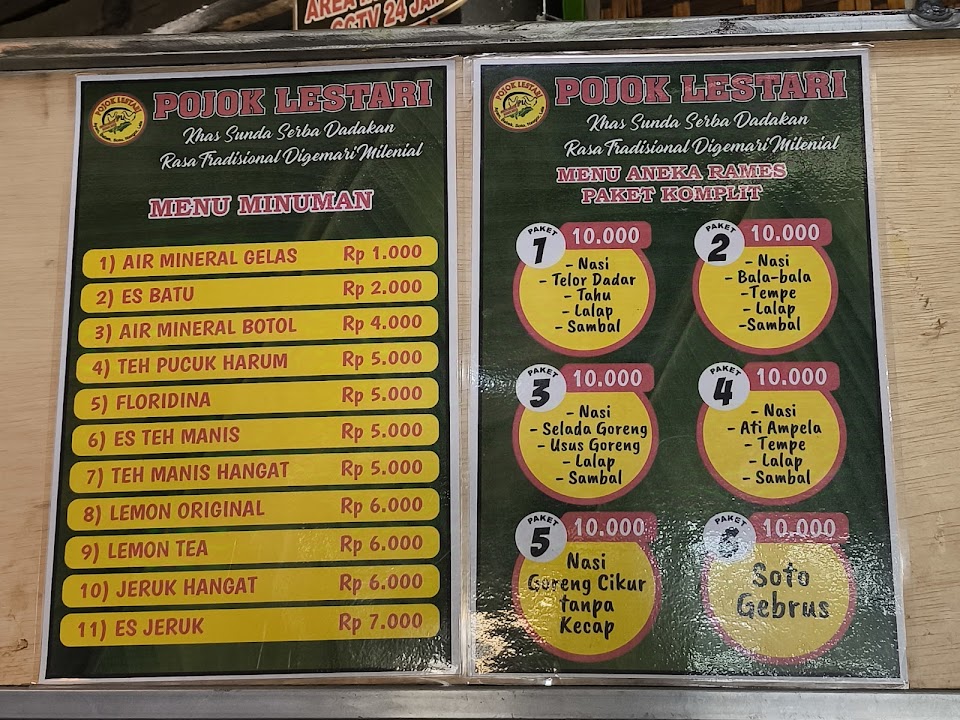 AREA
CCTV 24 JAM
POJOK LESTARI
POJOK LESTARI
Khas Sunda Serba Dadakan
Rasa Tradisional Digemari Milenial
MENU MINUMAN
1) AIR MINERAL GELAS Rp 1.000
2) ES BATU Rp 2.000
3) AIR MINERAL BOTOL Rp 4.000
4) TEH PUCUK HARUM Rp 5.000
5) FLORIDINA Rp 5.000
6) ES TEH MANIS Rp 5.000
7) TEH MANIS HANGAT Rp 5.000
8) LEMON ORIGINAL Rp 6.000
9) LEMON TEA Rp 6.000
10) JERUK HANGAT Rp 6.000
11) ES JERUK Rp 7.000
POJOK LESTARI
POJOK LESTARI
Khas Sunda Serba Dadakan
Rasa Tradisional Digemari Milenial
MENU ANEKA RAMES
PAKET KOMPLIT
PAKET 1 10.000
- Nasi
- Telor Dadar
- Tahu
- Lalap
- Sambal
PAKET 2 10.000
- Nasi
- Bala-bala
-Tempe
- Lalap
-Sambal
PAKET 3 10.000
- Nasi
- Selada Goreng
- Usus Goreng
- Lalap
- Sambal
PAKET 4 10.000
- Nasi
- Ati Ampela
- Tempe
- Lalap
- Sambal
PAKET 5 10.000
Nasi
Goreng Cikur
tanpa
Kecap
PAKET 6 10.000
Soto
Gebrus